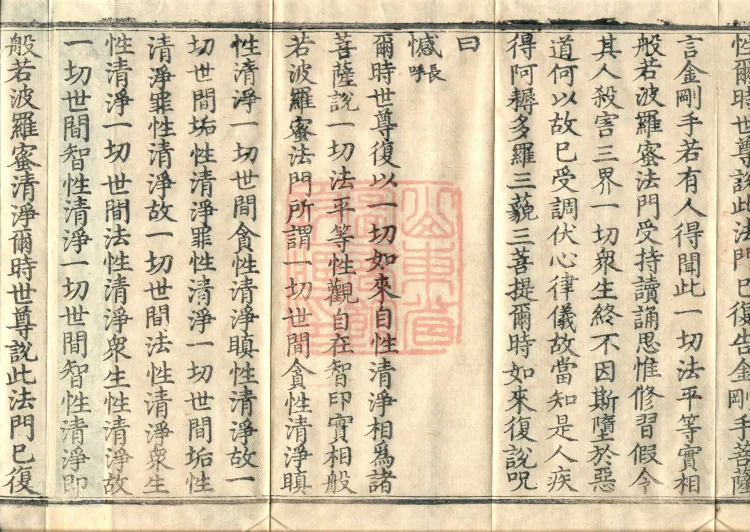 性爾時世尊說此法門已復告金剛手菩薩
言金剛手若有人得聞此一切法平等實相
般若波羅蜜法門受持讀誦思惟修習假令
其人殺害三界一切衆生終不因斯墮於惡
道何以故已受調伏心律儀故當知是人疾
得阿耨多羅三藐三菩提爾時如來復說呪
曰
憾長呼
爾時世尊復以一切如來自性清淨相爲諸
菩薩說一切法平等性觀自在智印實相般
若波羅蜜法門所謂一切世間貪性清淨瞋
性清淨一切世間貪性清淨瞋性清淨故一
切世間垢性清淨罪性清淨一切世間垢性
清淨罪性清淨故一切世間法性清淨衆生
性清淨一切世間法性清淨衆生性清淨故
一切世間智性清淨一切世間智性清淨即
般若波羅蜜清淨爾時世尊說此法門已復